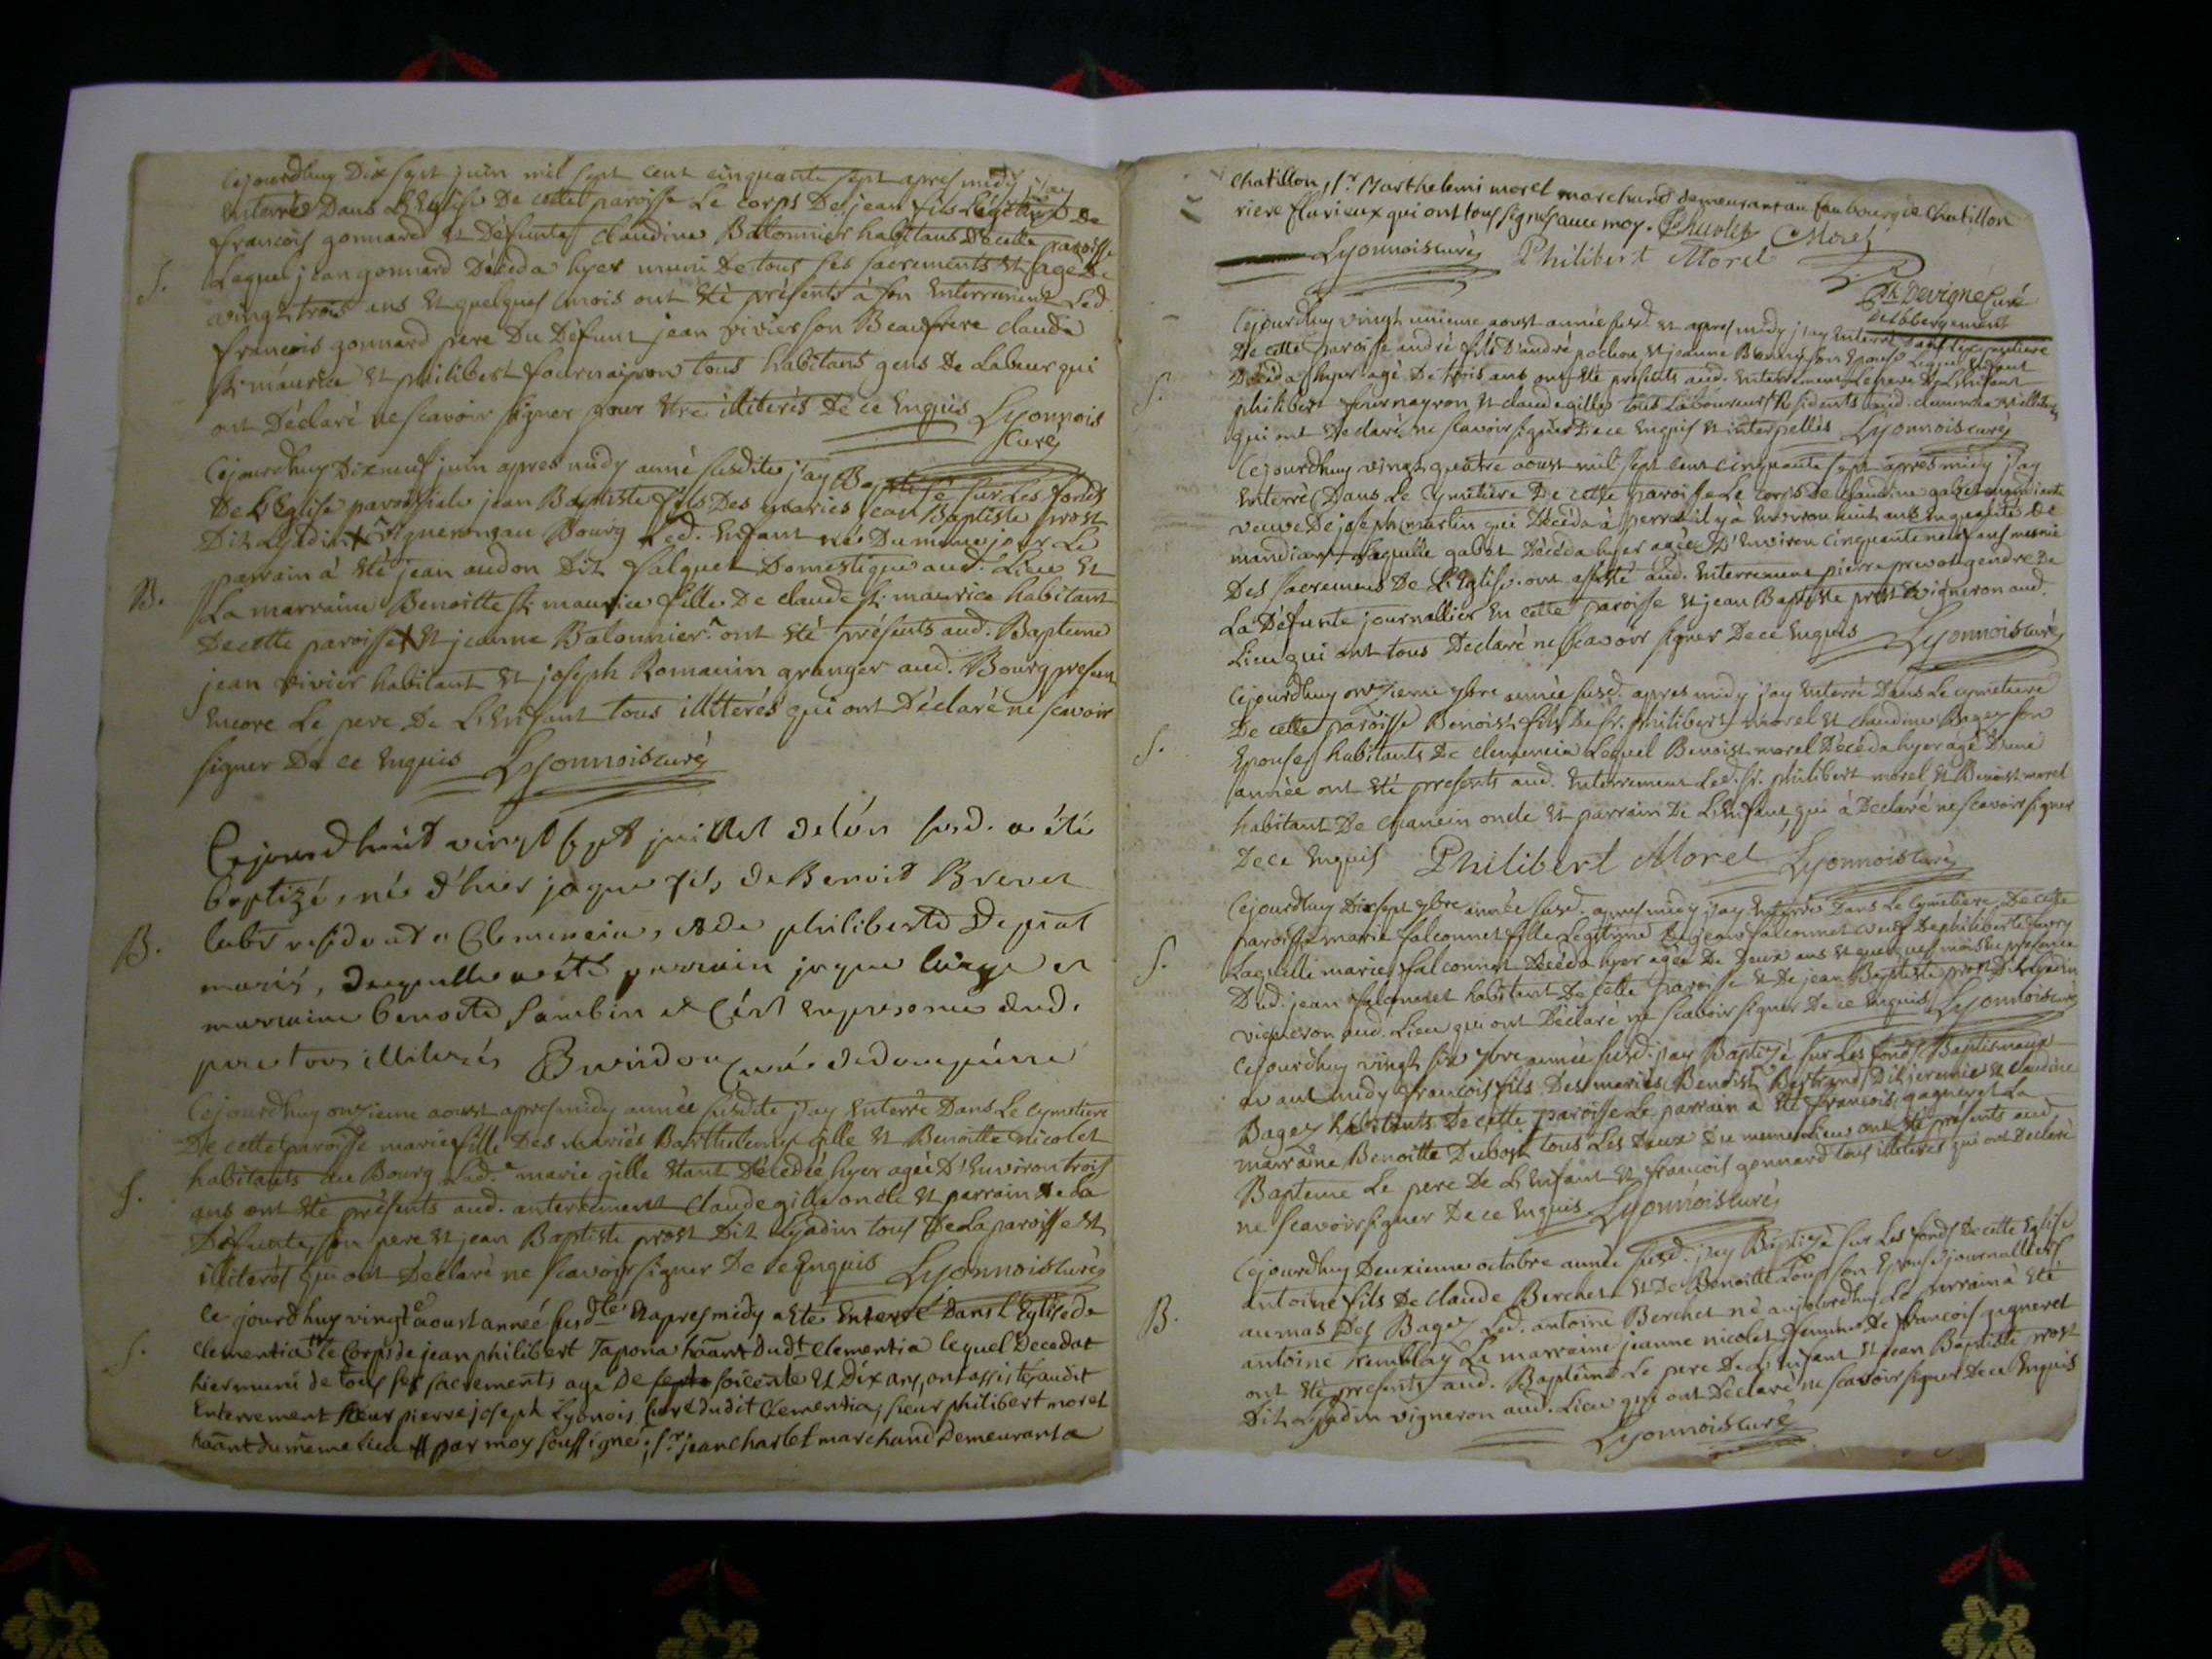 Cejourdhuy Dix sept juin mil sept cent cinquante sept apres midy j'ay
Enterré Dans L'Eglise De cette paroisse Le corps De jean fils Légitime De
francois gonnard Et Défunte claudine Batonnier habitans De cette paroisse
Lequel jean gonnard Décéda hyer muni De tous ses sacrements Et agé De
vingt trois ans Et quelques mois ont Eté présents à son Enterrement Led.
francois gonnard pere Du Défunt jean vivier son Beaufrere claude
St. maurice Et philibert fournaiyron tous habitans gens De Labeur qui
ont Déclaré ne scavoir signer pour Etre illiterés De ce Enquis Lyonnois
Curé
S.
Cejourdhuy Dixneuf juin apres midy année susdite j'ay Baptisé sur Les fonds
De L'Eglise paroissiale jean Baptiste fils Des mariés jean Baptiste prost
Dit Lyadin vigneron au Bourg Led. Enfant né Du meme jour Le
parrain à Eté jean audon Dit falquet Domestique aud. Lieu Et
La marraine Benoitte St. maurice fille De claude St. maurice habitant
De cette paroisse Et jeanne Batonnier ont Eté présents aud. Bapteme
jean vivier habitant Et joseph Romanin granger aud. Bourg present
Encore Le pere De L'Enfant tous illiterés qui ont Déclaré ne scavoir
signer De ce Enquis Lyonnois curé
B.
Cejourdhuit vingt sept juillet de l'an susd. a été
baptizé, né d'hier jaque fils de Benoit Brevet
labr résident a Clemencia, et de philiberte Depiat
mariés, duquel a été parrain jaque
marraine benoite Sambin et C'est en presence dud.
pere tous illiterés curé de dompierre
B.
Cejourdhuy onzieme aoust apres midy année susdite j'ay Enterré Dans Le cymetiere
De cette paroisse marie fille Des mariés Barthelemy gille Et Benoitte nicolet
habitants au Bourg Lad. marie gille Etant Décédée hyer agée D'Environ trois
ans ont Eté présents aud. anterrement claude gille oncle Et parrain De La
Défunte, son pere Et jean Baptiste prost Dit Lyadin tous De La paroisse Et
illiterés qui ont Déclaré ne scavoir signer De ce Enquis Lyonnois Curé
S.
Ce jourdhuy vingt aoust année susdte Et apres midy a Eté Enterré Dans l'Eglise de
Clementia le Corps de jean philibert Tapona haant Dudt Clementia lequel Decedat
hier muni de tous ses sacrements agé De soicente Et Dix ans, ont assisté audit
Enterrement sieur pierre joseph Lyonois Curé dudit Clementia, sieur philibert morel
haant du même lieu par moy soussigné, Sr. jean Charlet marchand Demeurant a
S.
Chatillon, Sr. Barthelemi morel marchand demeurant au faubourg de Chatillon
riere fluvieux qui ont tous signés avec moy. Charlet Morel
Lyonnois curé Philibert Morel
Devigne Curé
de Labbergement
Cejourdhuy vingt unieme aoust année susd. Et apres midy j'ay Enterré Dans Le cymetiere
De cette paroisse andré fils D'andré pochon Et jeanne son Epouse Lequel Enfant
Décéda hyer agé De trois ans ont Eté présents aud. Enterrement Le pere De L'Enfant
philibert fournayron Et claude gille tous Laboureurs Residents aud. clemencia Et illiterés
qui ont Declaré ne scavoir signer De ce Enquis Et interpellés Lyonnois curé
S.
Cejourdhuy vingt quatre aoust mil sept cent cinquante sept apres midy j'ay
Enterré Dans Le Cymetiere De cette paroisse Le corps De claudine gabet mandiante
veuve De joseph martin qui Décéda à perret il y à Environ huit ans En qualité De
mandiant Laquelle gabet Décéda hyer agée D'Environ cinquante neuf ans munie
Des sacremens De L'Eglise. ont assisté aud. Enterrement pierre prevost gendre De
La Défunte journallier En cette paroisse Et jean Baptiste prost vigneron aud.
Lieu qui ont tous Declaré ne scavoir signer De ce Enquis Lyonnois curé
Cejourdhuy onzieme 7bre année susd. apres midy j'ay Enterré Dans Le cymetiere
De cette paroisse Benoist fils De Sr. philibert morel Et claudine Bagey son
Epouse habitants De clemencia Lequel Benoist morel Décéda hyer agé D'une
année ont Eté présents aud. Enterrement Led. Sr. philibert morel Et Benoist morel
habitant De chanein oncle Et parrain De L'Enfant, qui à Déclaré ne scavoir signer
De ce Enquis Philibert Morel Lyonnois Curé
S.
Cejourdhuy Dixsept 7bre année susd. apres midy j'ay Enterré Dans Le Cymetiere De cette
paroisse marie falconnet fille Legitime De jean falconnet veuf De philiberte
Laquelle marie falconnet Décéda hyer agée De Deux ans Et quelques mois En presence
Dud. jean falconnet habitant De cette paroisse Et De jean Baptiste prost Dit Lyadin
vigneron aud. Lieu qui ont Déclaré ne scavoir signer De ce Enquis Lyonnois curé
S.
Cejourdhuy vingt six 7bre année susd. j'ay Baptizé sur Les fonds Baptismaux
avant midy francois fils Des mariés Benoist Bertrand Dit jeremie Et claudine
Bagey habitants De cette paroisse Le parrain à Eté francois gagneret La
marraine Benoitte Dubost tous Les Deux Du meme Lieu ont Eté présents aud.
Bapteme Le pere De L'Enfant Et francois gonnard tous illiterés qui ont Declaré
ne scavoir signer De ce Enquis Lyonnois Curé
Cejourdhuy Deuxieme octobre année susd. j'ay Baptizé sur Les fonds De cette Eglise
antoine fils De claude Berchet Et De Benoitte Loup son Epouse journalliers
au mas Des Bagey Led. antoine Berchet né aujourdhuy Le parrain à Eté
antoine tremblay La marraine jeanne nicolet femme De francois gagneret
ont Eté présents aud. Baptême Le pere De L'Enfant Et jean Baptiste prost
Dit Lyadin vigneron aud. Lieu qui ont Déclaré ne scavoir signer De ce Enquis
Lyonnois curé
B.